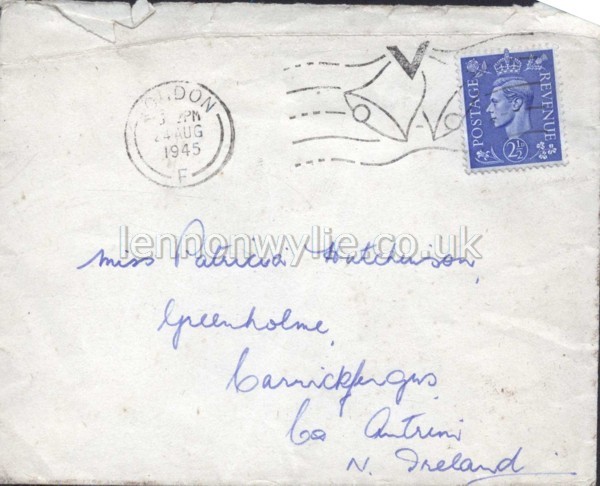 LONDON
PM
24 AUG
1945
F
V
POSTAGE
REVENUE
2½
lennonwylie.co.uk
Miss Patricia Hutchinson,
Greenholme,
Carrickfergus
Co Antrim
N. Ireland